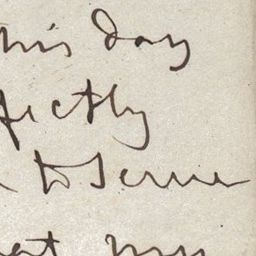 this day
fectly
to serve
at my